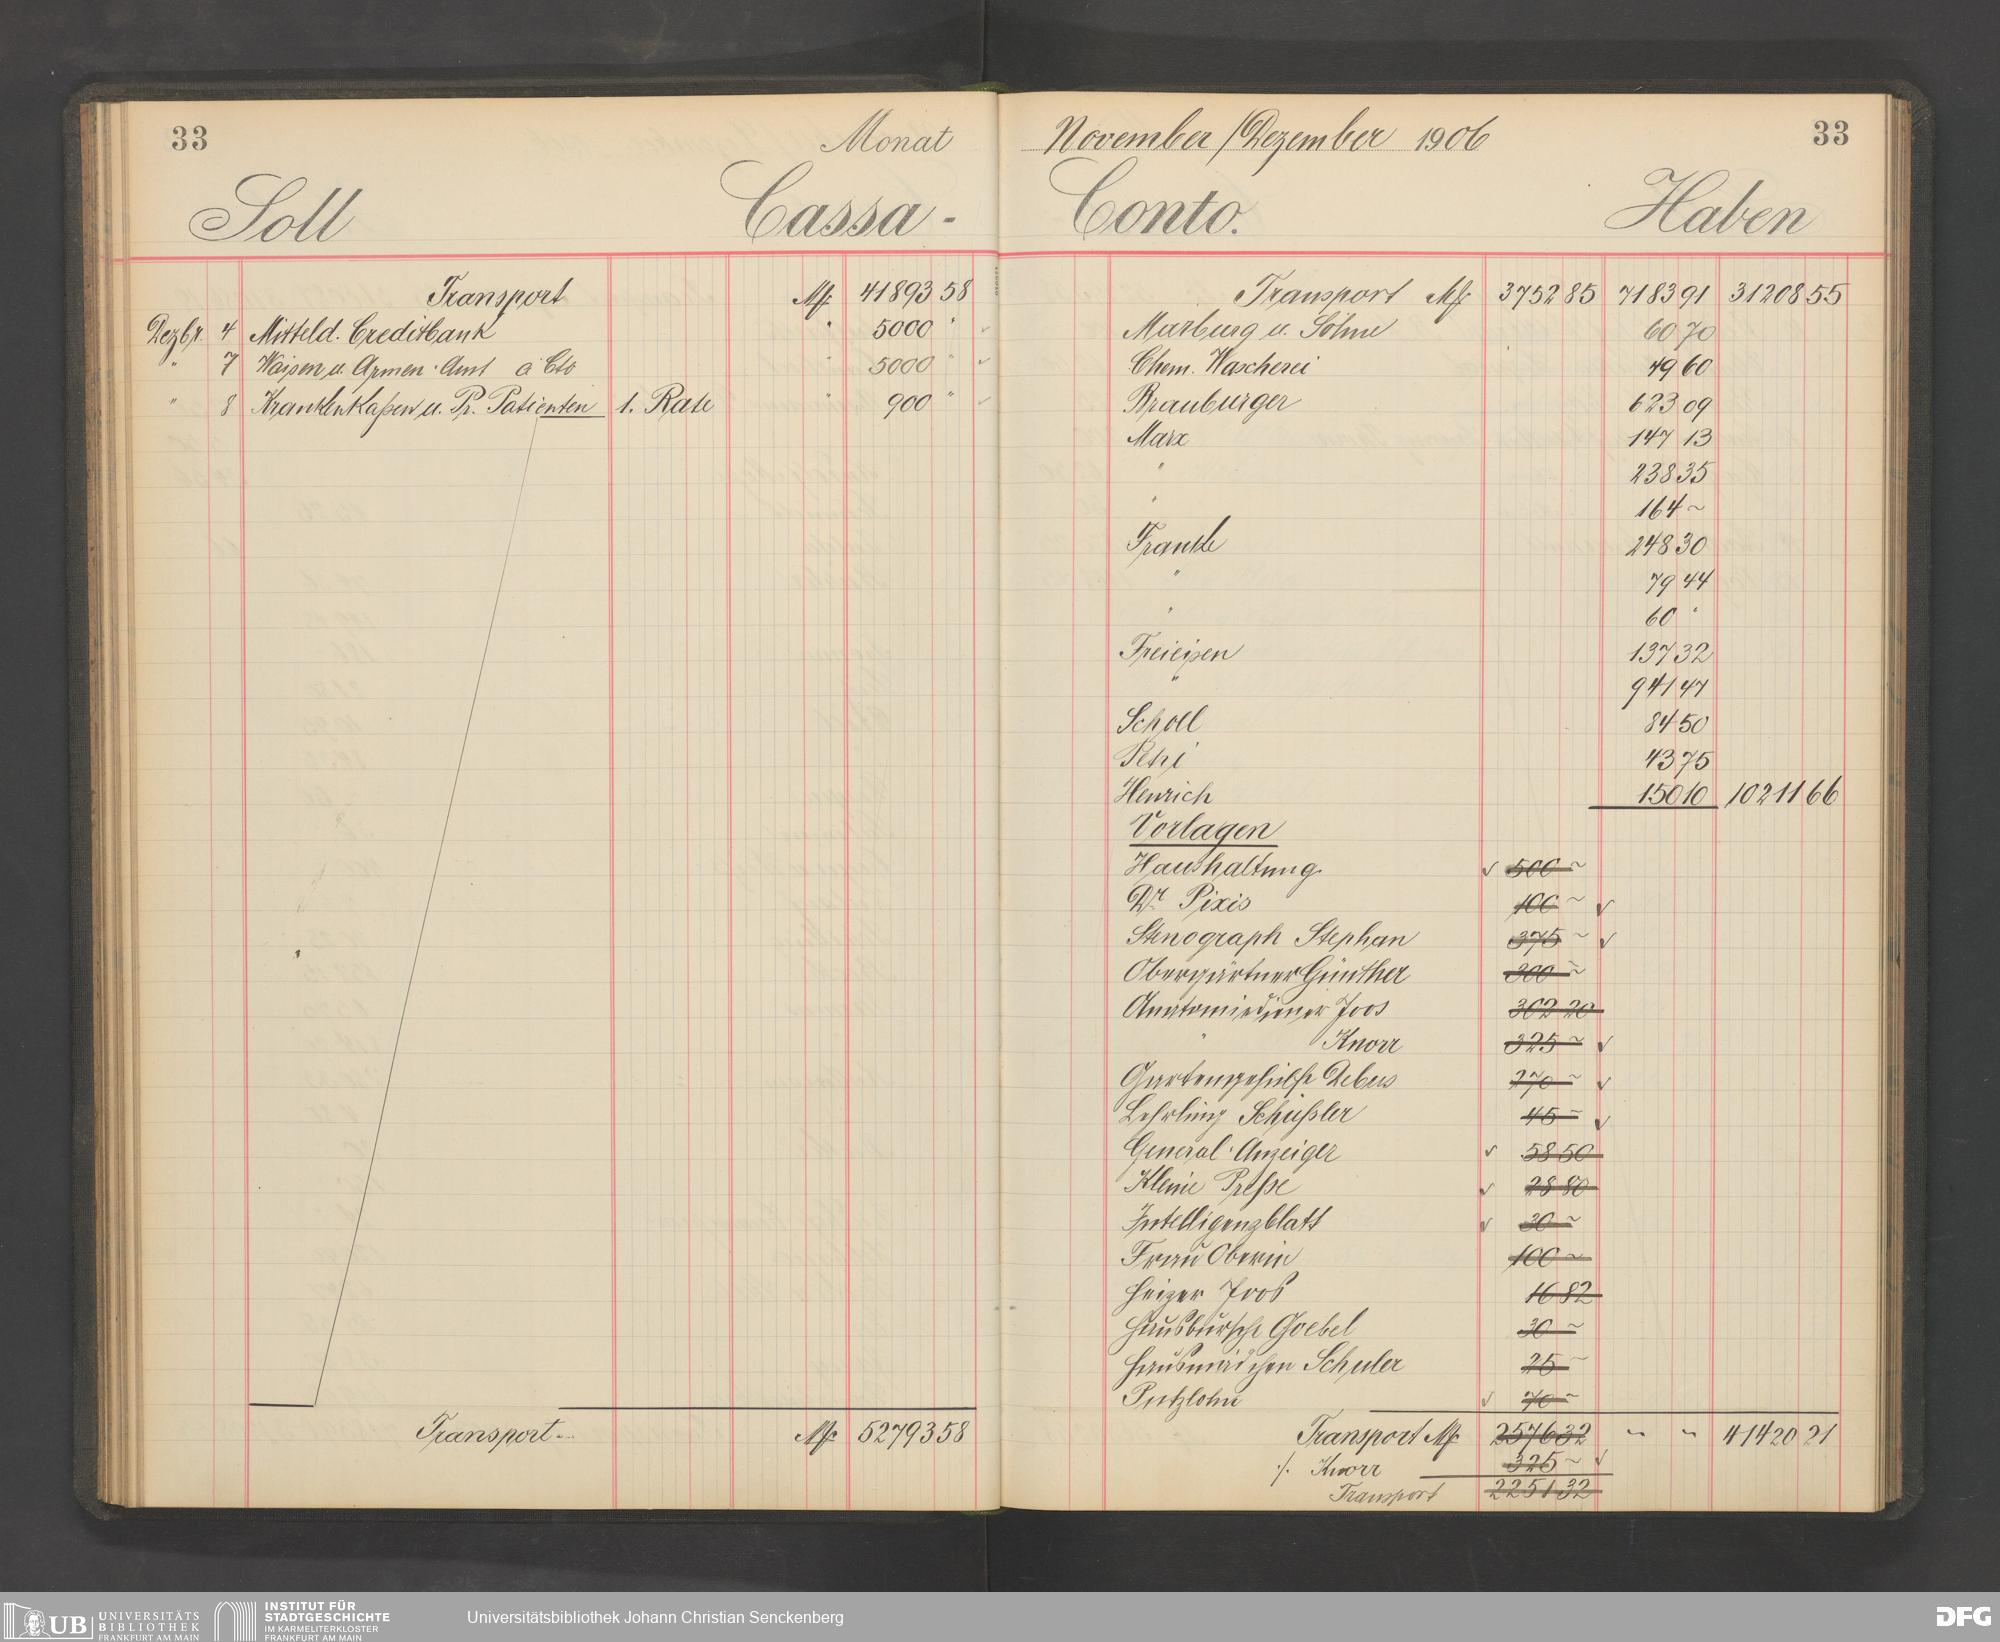 33
Monat
Soll
Cassa-
Transport M 41893 58
Dezbr. 4 Mitteld. Creditbank " 5000 "
" 7 Waisen u. Armen-Amt à Cto " 5000 "
" 8 Krankenkaßen u. Pr. Patienten 1. Rate " 900 "
Transport M 52793 58
November/Dezember 1906
33
Conto.
Haben
Transport M 3752 85 7183 91 31208 55
Marburg u. Söhne 60 70
Chem. Wascherei 49 60
Brauburger 623 09
Marx 147 13
" 238 35
" 164 ~
Franck 248 30
" 79 44
" 60 "
Freieisen 137 32
" 941 47
Scholl 84 50
Petri 43 75
Henrich 150 10 10211 66
Vorlagen
Haushaltung 500 ~
Dr. Pixis 100 ~
Stenograph Stephan 375 ~
Obergärtner Günther 300 ~
Anatomiediener Joos 302 20
" Knorr 325 ~
Gartengehülfe Debus 270 ~
Lehrling Schüßler 45 ~
General-Anzeiger 58 50
Kleine Preße 28 80
Intelligenzblatt 30 ~
Frau Oberin 100 ~
Heizer Joos 16 82
Hausbursche Goebel 30 ~
Hausmädchen Schuler 25 ~
Putzlohn 70 ~
Transport M 2576 32 " " 41420 21
./. Knorr 325 ~
Transport 2251 32
UB UNIVERSITÄTS
BIBLIOTHEK
FRANKFURT AM MAIN
INSTITUT FÜR
STADTGESCHICHTE
IM KARMELITERKLOSTER
FRANKFURT AM MAIN
Universitätsbibliothek Johann Christian Senckenberg
DFG